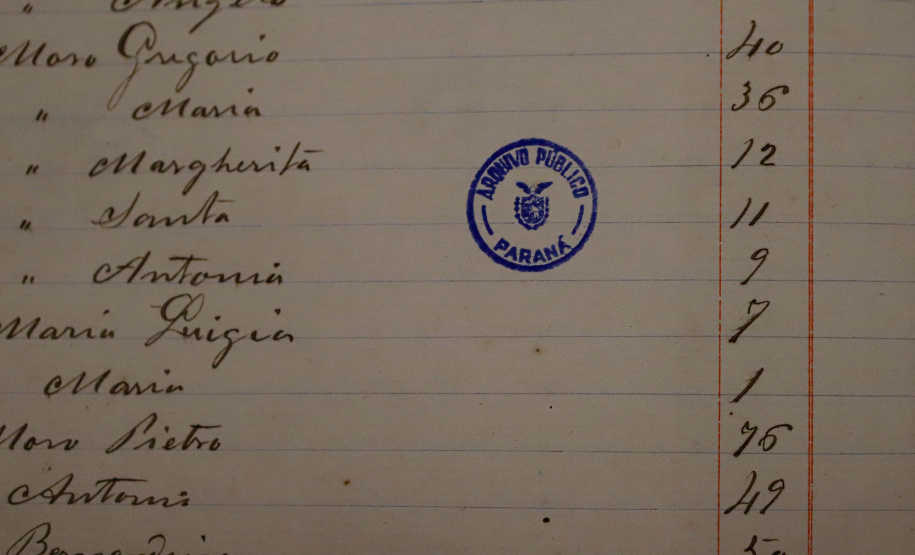 " Angelo
Moro Gregorio 40
" Maria 36
" Margherita 12
" Santa 11
" Antonia 9
Maria Luigia 7
Maria 1
Moro Pietro 76
Antonio 49
ARQUIVO PÚBLICO
PARANÁ